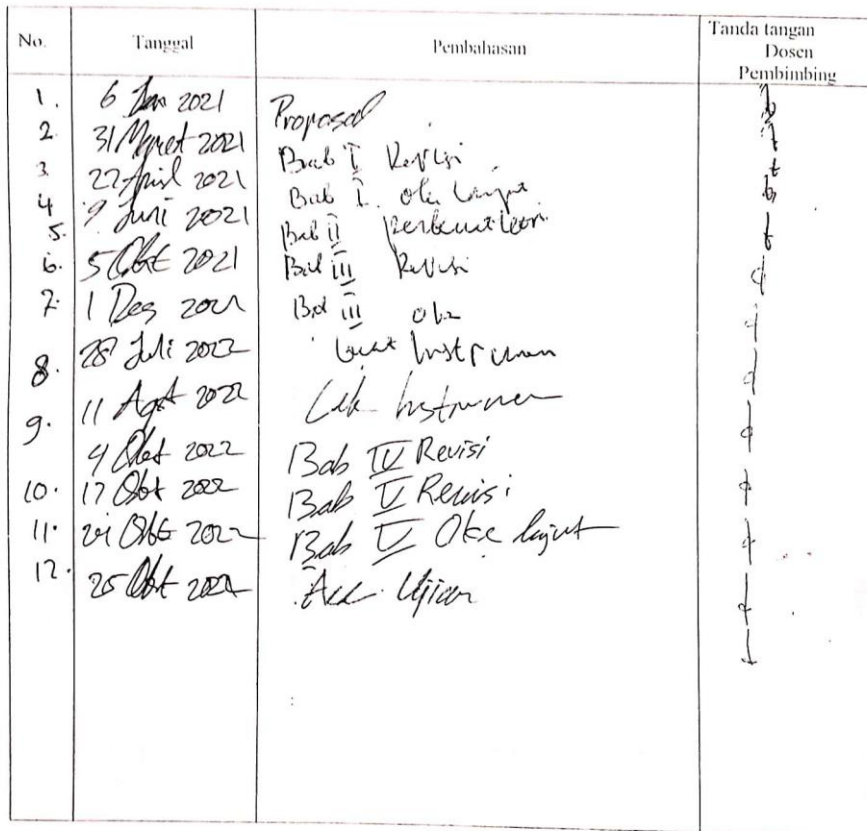 No. Tanggal Pembahasan Tanda tangan Dosen Pembimbing
1. 6 Jan 2021 Proposal
2. 31 Maret 2021 Bab I Revisi
3. 22 April 2021 Bab I oke lanjut
4. 9 Juni 2021 Bab II perkuat teori
5. 5 Okt 2021 Bab III Revisi
6. 1 Des 2021 Bab III oke
7. 28 Juli 2022 buat Instrumen
8. 11 Agt 2022 Cek Instrumen
9. 4 Okt 2022 Bab IV Revisi
10. 17 Okt 2022 Bab V Revisi
11. Okt 2022 Bab V Oke lanjut
12. 25 Okt 2022 Acc Ujian